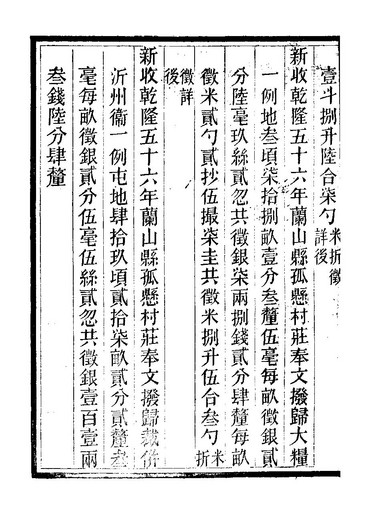 壹斗捌升陸合柒勺米折徵詳後
新收乾隆五十六年蘭山縣孤懸村莊奉文撥歸大糧
一例地叁頃柒拾捌畝壹分叁釐伍毫每畝徵銀貳
分陸毫玖絲貳忽共徵銀柒兩捌錢貳分捌釐每畝
徵米貳勺貳抄伍撮柒圭共徵米捌升伍合叁勺米折
徵詳後
新收乾隆五十六年蘭山縣孤懸村莊奉文撥歸裁併
沂州衞一例屯地肆拾玖頃貳拾柒畝貳分貳釐叁
毫每畝徵銀貳分伍毫伍絲貳忽共徵銀壹百壹兩
叁錢陸分肆釐